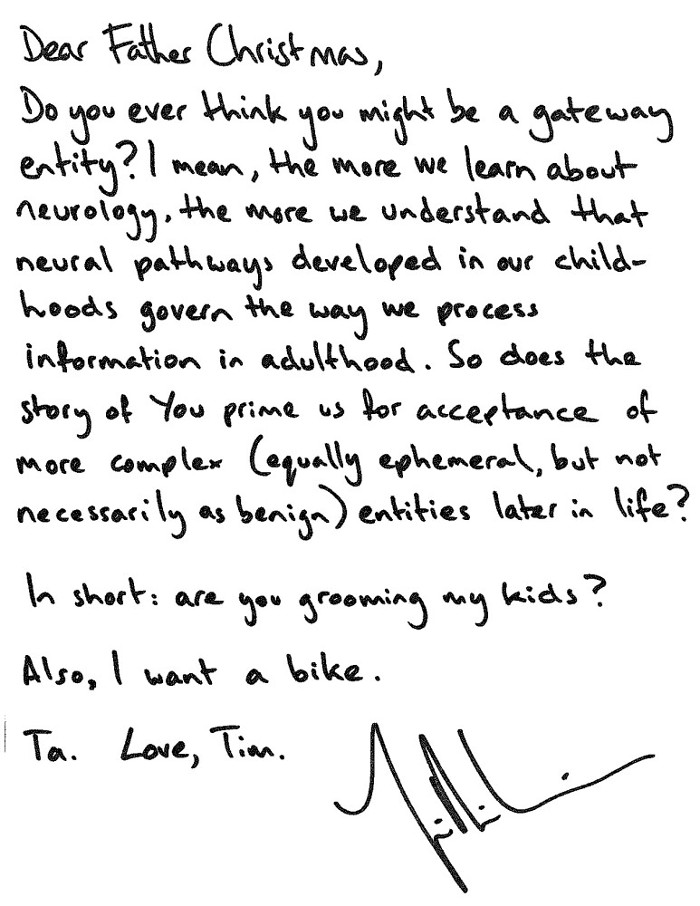 Dear Father Christmas,
Do you ever think you might be a gateway
entity? I mean, the more we learn about
neurology, the more we understand that
neural pathways developed in our child-
hoods govern the way we process
information in adulthood. So does the
story of You prime us for acceptance of
more complex (equally ephemeral, but not
necessarily as benign) entities later in life?
In short: are you grooming my kids?
Also, I want a bike.
Ta. Love, Tim.